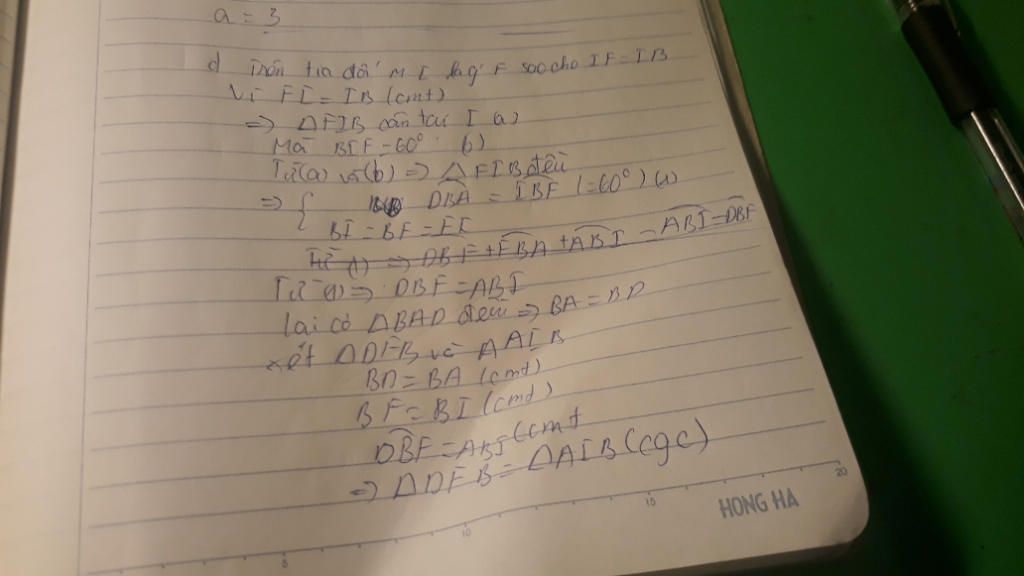 a = 3
d Trên tia đối M I lấy F sao cho IF = IB
Vì FI = IB (cmt)
=> ΔFIB cân tại I (a)
Mà BIF = 60° (b)
Từ (a) và (b) => ΔFIB đều
=> { DBA = IBF (=60°) (1)
BI = BF = FI
Từ (1) => DBF + FBA + ABI - ABI = DBF
Từ (1) => DBF = ABI
lại có ΔBAD đều => BA = BD
xét ΔDFB và ΔAIB
BD = BA (cmt)
BF = BI (cmt)
DBF = ABI (cmt
=> ΔDFB = ΔAIB (cgc)
HONG HA
5 10 15 20